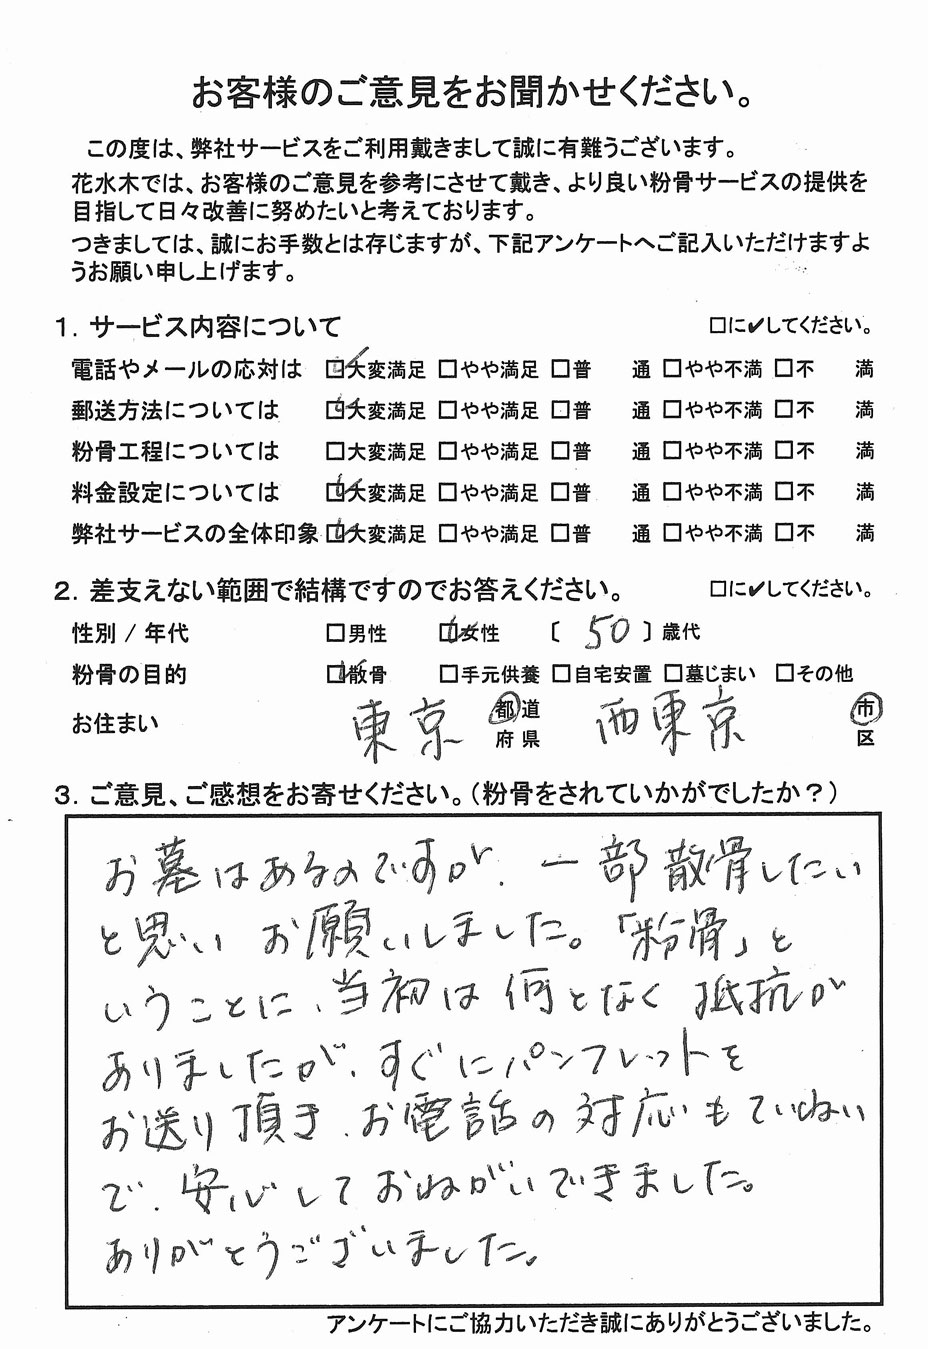 お客様のご意見をお聞かせください。
この度は、弊社サービスをご利用戴きまして誠に有難うございます。
花水木では、お客様のご意見を参考にさせて戴き、より良い粉骨サービスの提供を
目指して日々改善に努めたいと考えております。
つきましては、誠にお手数とは存じますが、下記アンケートへご記入いただけますよ
うお願い申し上げます。
1. サービス内容について □に✔してください。
電話やメールの応対は ☑大変満足 □やや満足 □普 通 □やや不満 □不 満
郵送方法については ☑大変満足 □やや満足 □普 通 □やや不満 □不 満
粉骨工程については □大変満足 □やや満足 □普 通 □やや不満 □不 満
料金設定については ☑大変満足 □やや満足 □普 通 □やや不満 □不 満
弊社サービスの全体印象 ☑大変満足 □やや満足 □普 通 □やや不満 □不 満
2. 差支えない範囲で結構ですのでお答えください。 □に✔してください。
性別 / 年代 □男性 ☑女性 〔 50 〕歳代
粉骨の目的 ☑散骨 □手元供養 □自宅安置 □墓じまい □その他
お住まい 東京 都道府県 西東京 市区
3. ご意見、ご感想をお寄せください。（粉骨をされていかがでしたか？）
お墓はあるのですが、一部散骨したい
と思い お願いしました。「粉骨」と
いうことに、当初は何となく抵抗が
ありましたが、すぐにパンフレットを
お送り頂き、お電話の対応もていねい
で、安心しておねがいできました。
ありがとうございました。
アンケートにご協力いただき誠にありがとうございました。